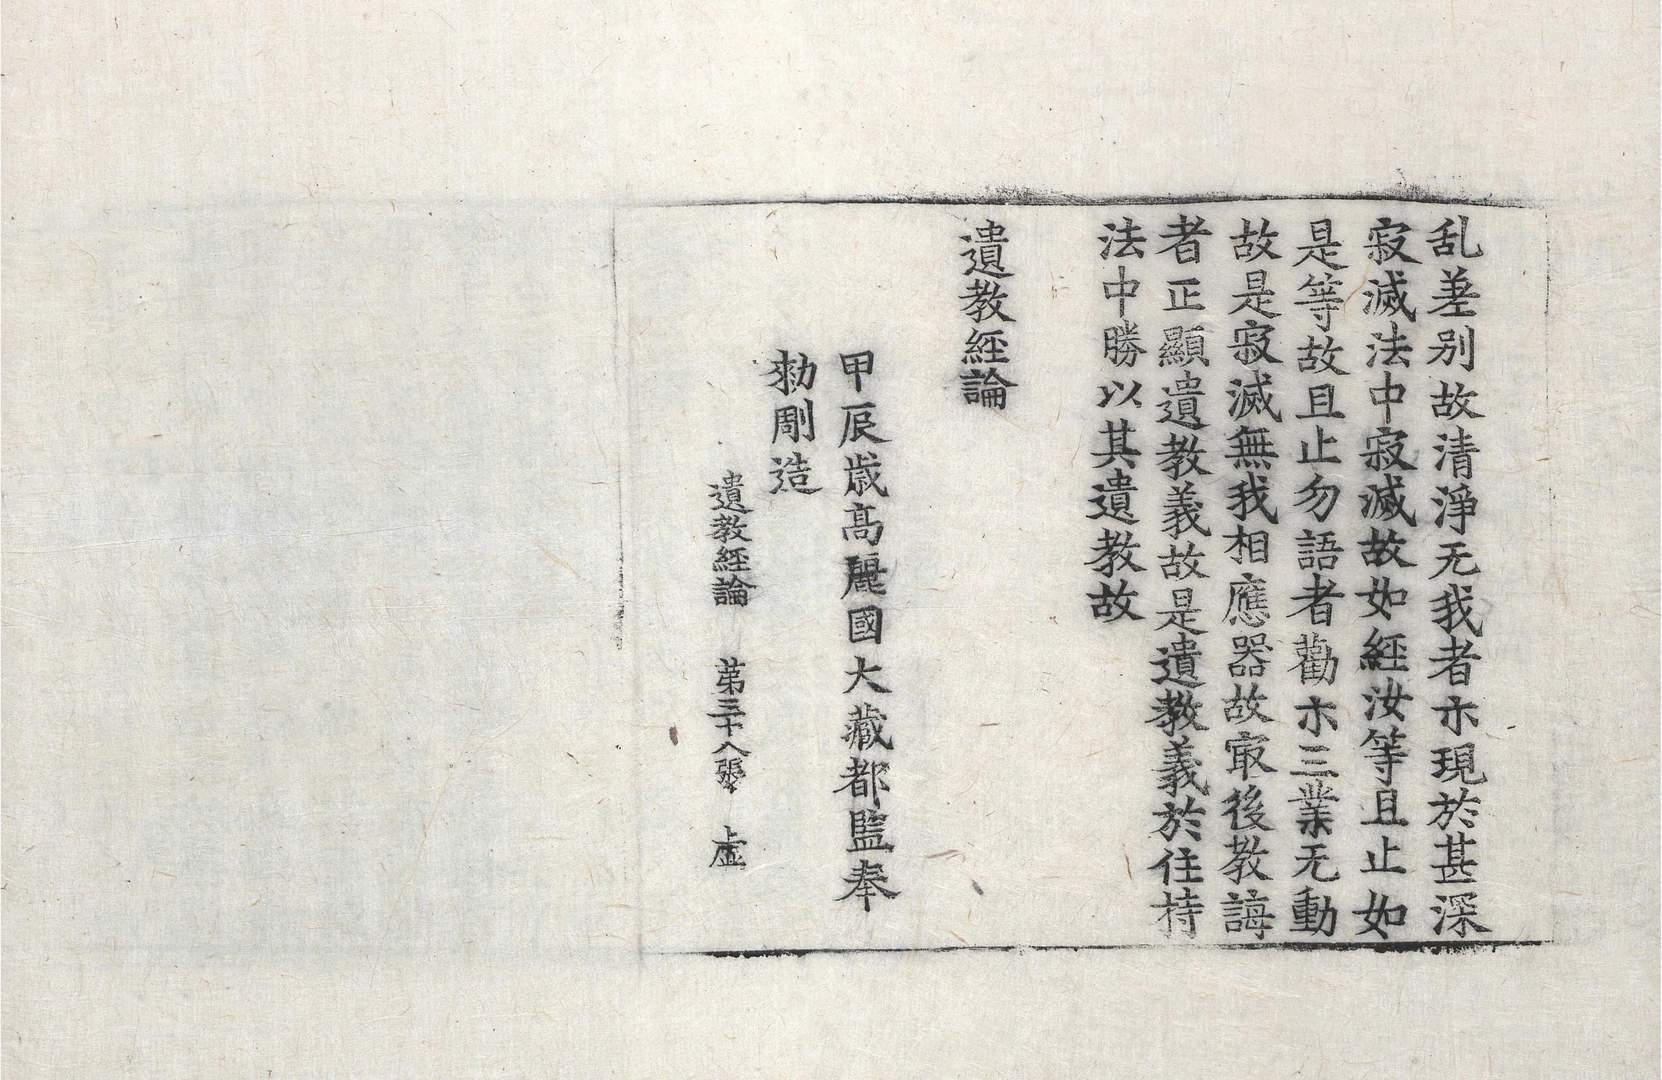 乱差別故清淨无我者示現於甚深
寂滅法中寂滅故如經汝等且止如
是等故且止勿語者勸示三業无動
故是寂滅無我相應器故㝡後教誨
者正顯遺教義故是遺教義於住持
法中勝以其遺教故
遺教經論
甲辰歲高麗國大藏都監奉
勑剛造
遺教經論 苐三十八張 虛